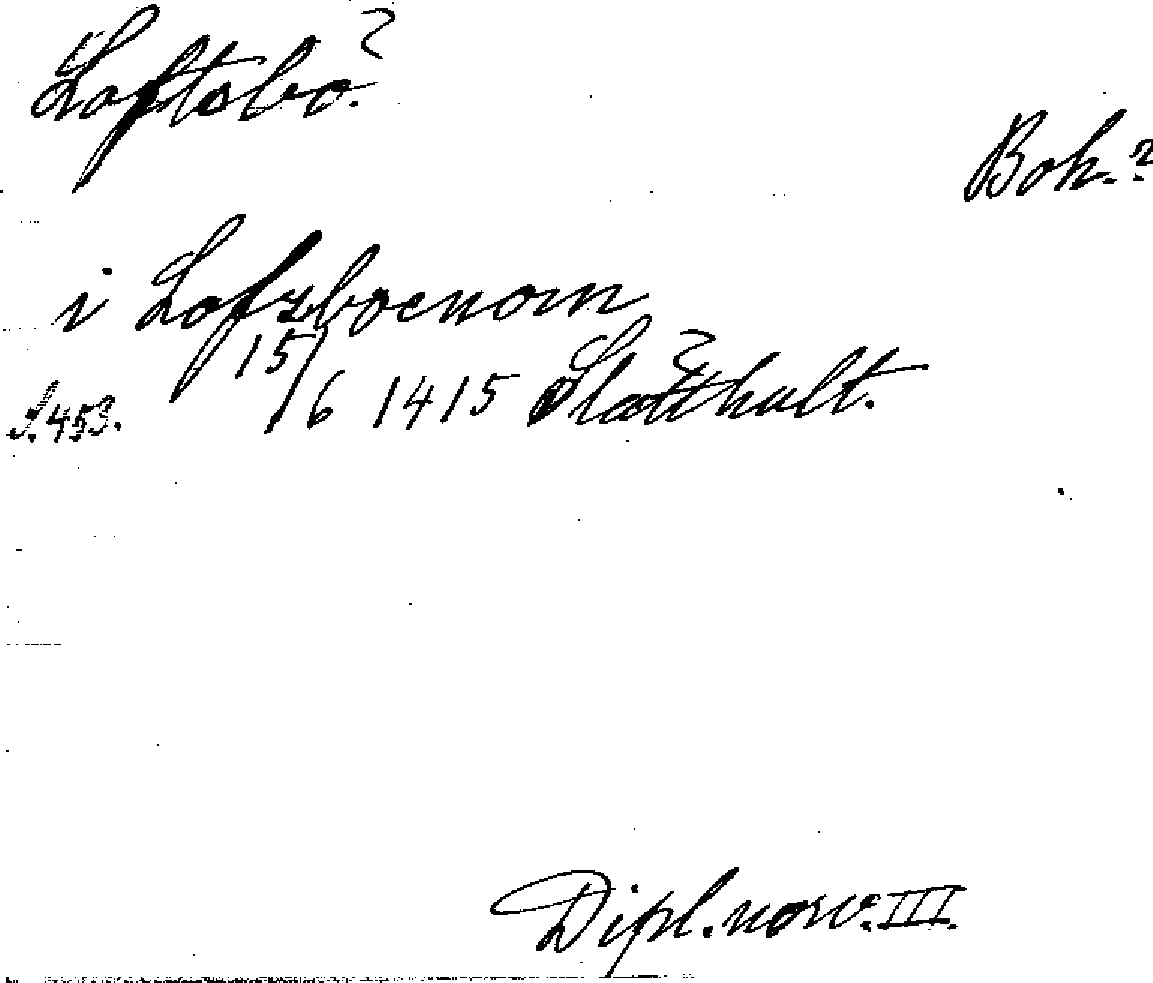 Loftsbo?
Boh.?
i Lofzboenom
15/6 1415 Slætthult.
S. 453.
Dipl. norv. III.